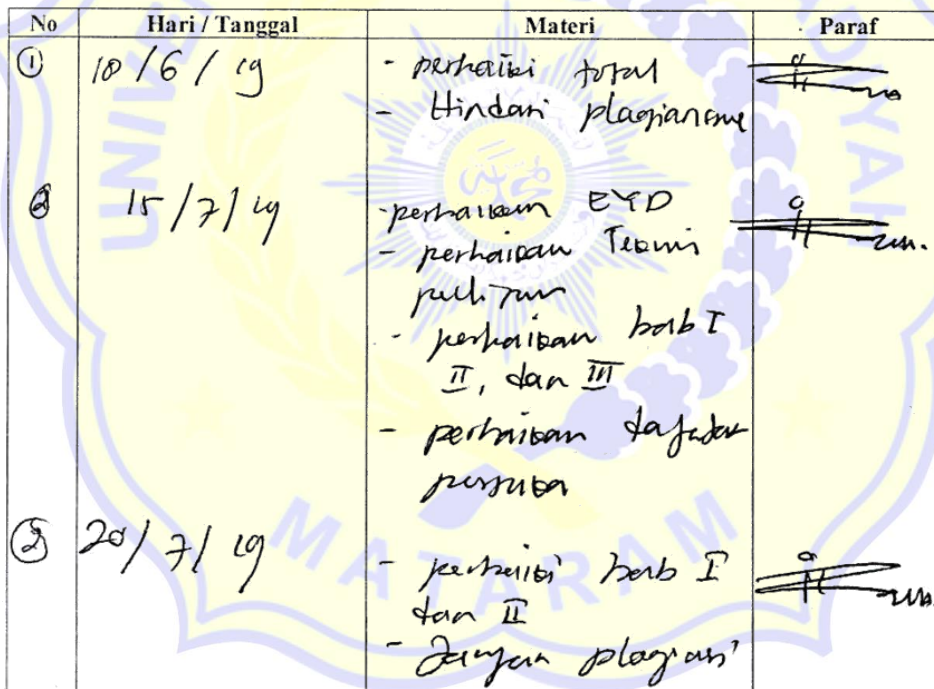 No Hari / Tanggal Materi Paraf
① 18/6/19 - perbaiki total
- Hindari plagiarisme
② 15/7/19 - perbaikan EYD
- perbaikan Teknis
penulisan
- perbaikan bab I
II, dan III
- perbaikan daftar
pustaka
③ 20/7/19 - perbaiki bab I
dan II
- Jangan plagiasi
UNIVE
ADIYAH
MATARAM